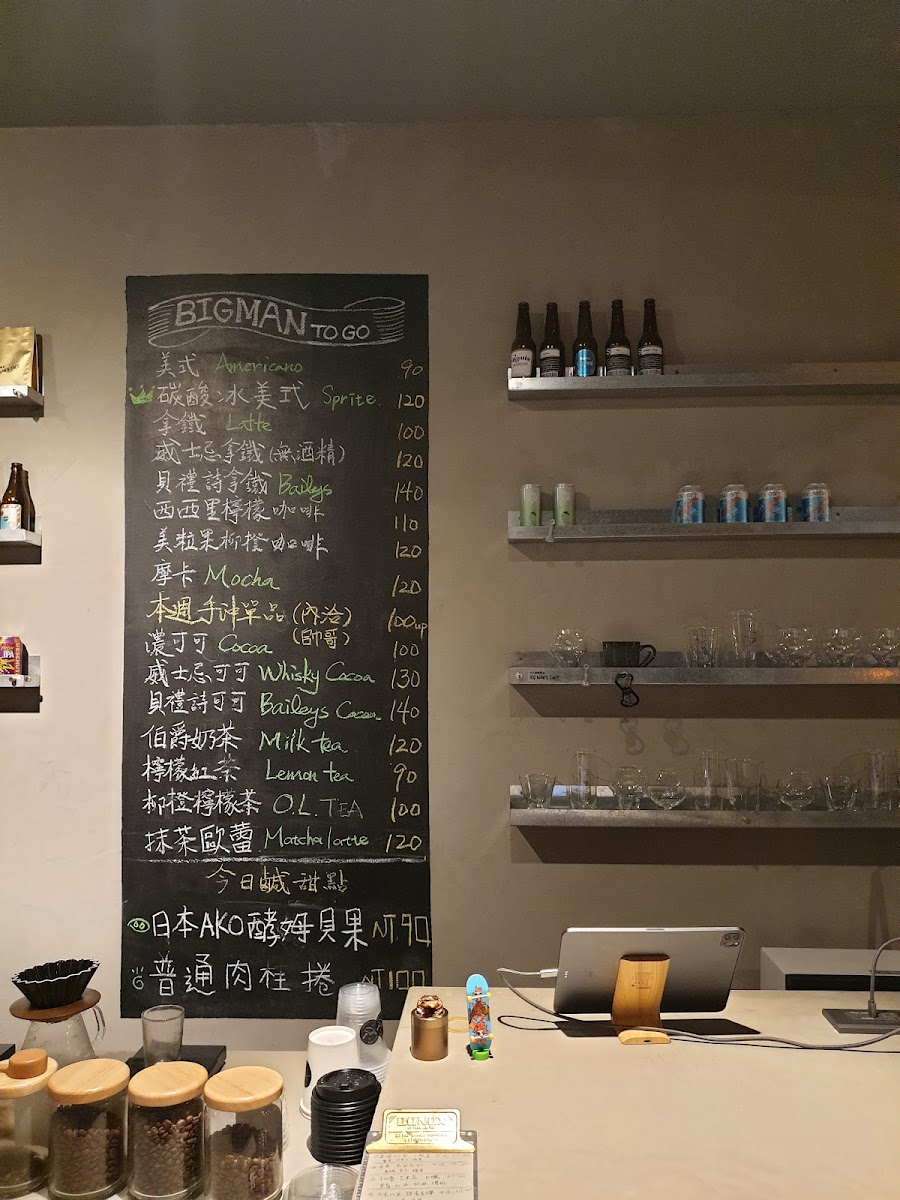 BIGMAN TO GO
美式 Americano 90
碳酸冰美式 Sprite. 120
拿鐵 Latte 100
威士忌拿鐵(無酒精) 120
貝禮詩拿鐵 Baileys 140
西西里檸檬咖啡 110
美粒果柳橙咖啡 120
摩卡 Mocha 120
本週手沖單品(內洽) 100up
(帥哥)
濃可可 Cocoa 100
威士忌可可 Whisky Cocoa 130
貝禮詩可可 Baileys Cocoa 140
伯爵奶茶 Milk tea 120
檸檬紅茶 Lemon tea 90
柳橙檸檬茶 O.L. TEA 100
抹茶歐蕾 Matcha latte 120
今日鹹甜點
日本AKO酵姆貝果 NT.90
普通肉桂捲 NT100
IPA